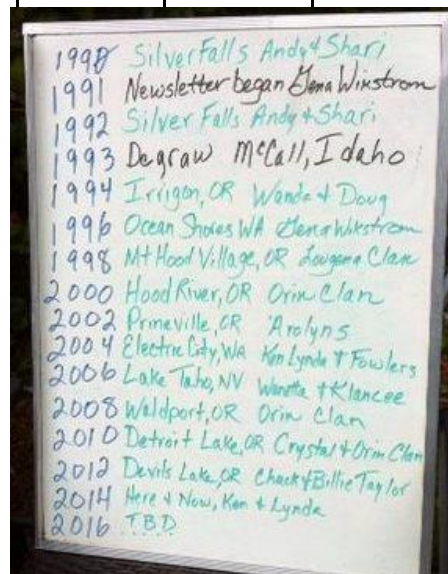 1990 Silver Falls Andy & Shari
1991 Newsletter began Glena Wikstrom
1992 Silver Falls Andy & Shari
1993 Degraw McCall, Idaho
1994 Irrigon, OR Wanda & Doug
1996 Ocean Shores WA Glena Wikstrom
1998 Mt Hood Village, OR Clan
2000 Hood River, OR Orin Clan
2002 Prineville, OR Arolyns
2004 Electric City, WA Ken Lynda & Fowlers
2006 Lake Taho, NV Wanetta & Klancee
2008 Waldport, OR Orin Clan
2010 Detroit Lake, OR Crystal & Orin Clan
2012 Devils Lake, OR Chuck & Billie Taylor
2014 Here & Now, Ken & Lynda
2016 T.B.D.